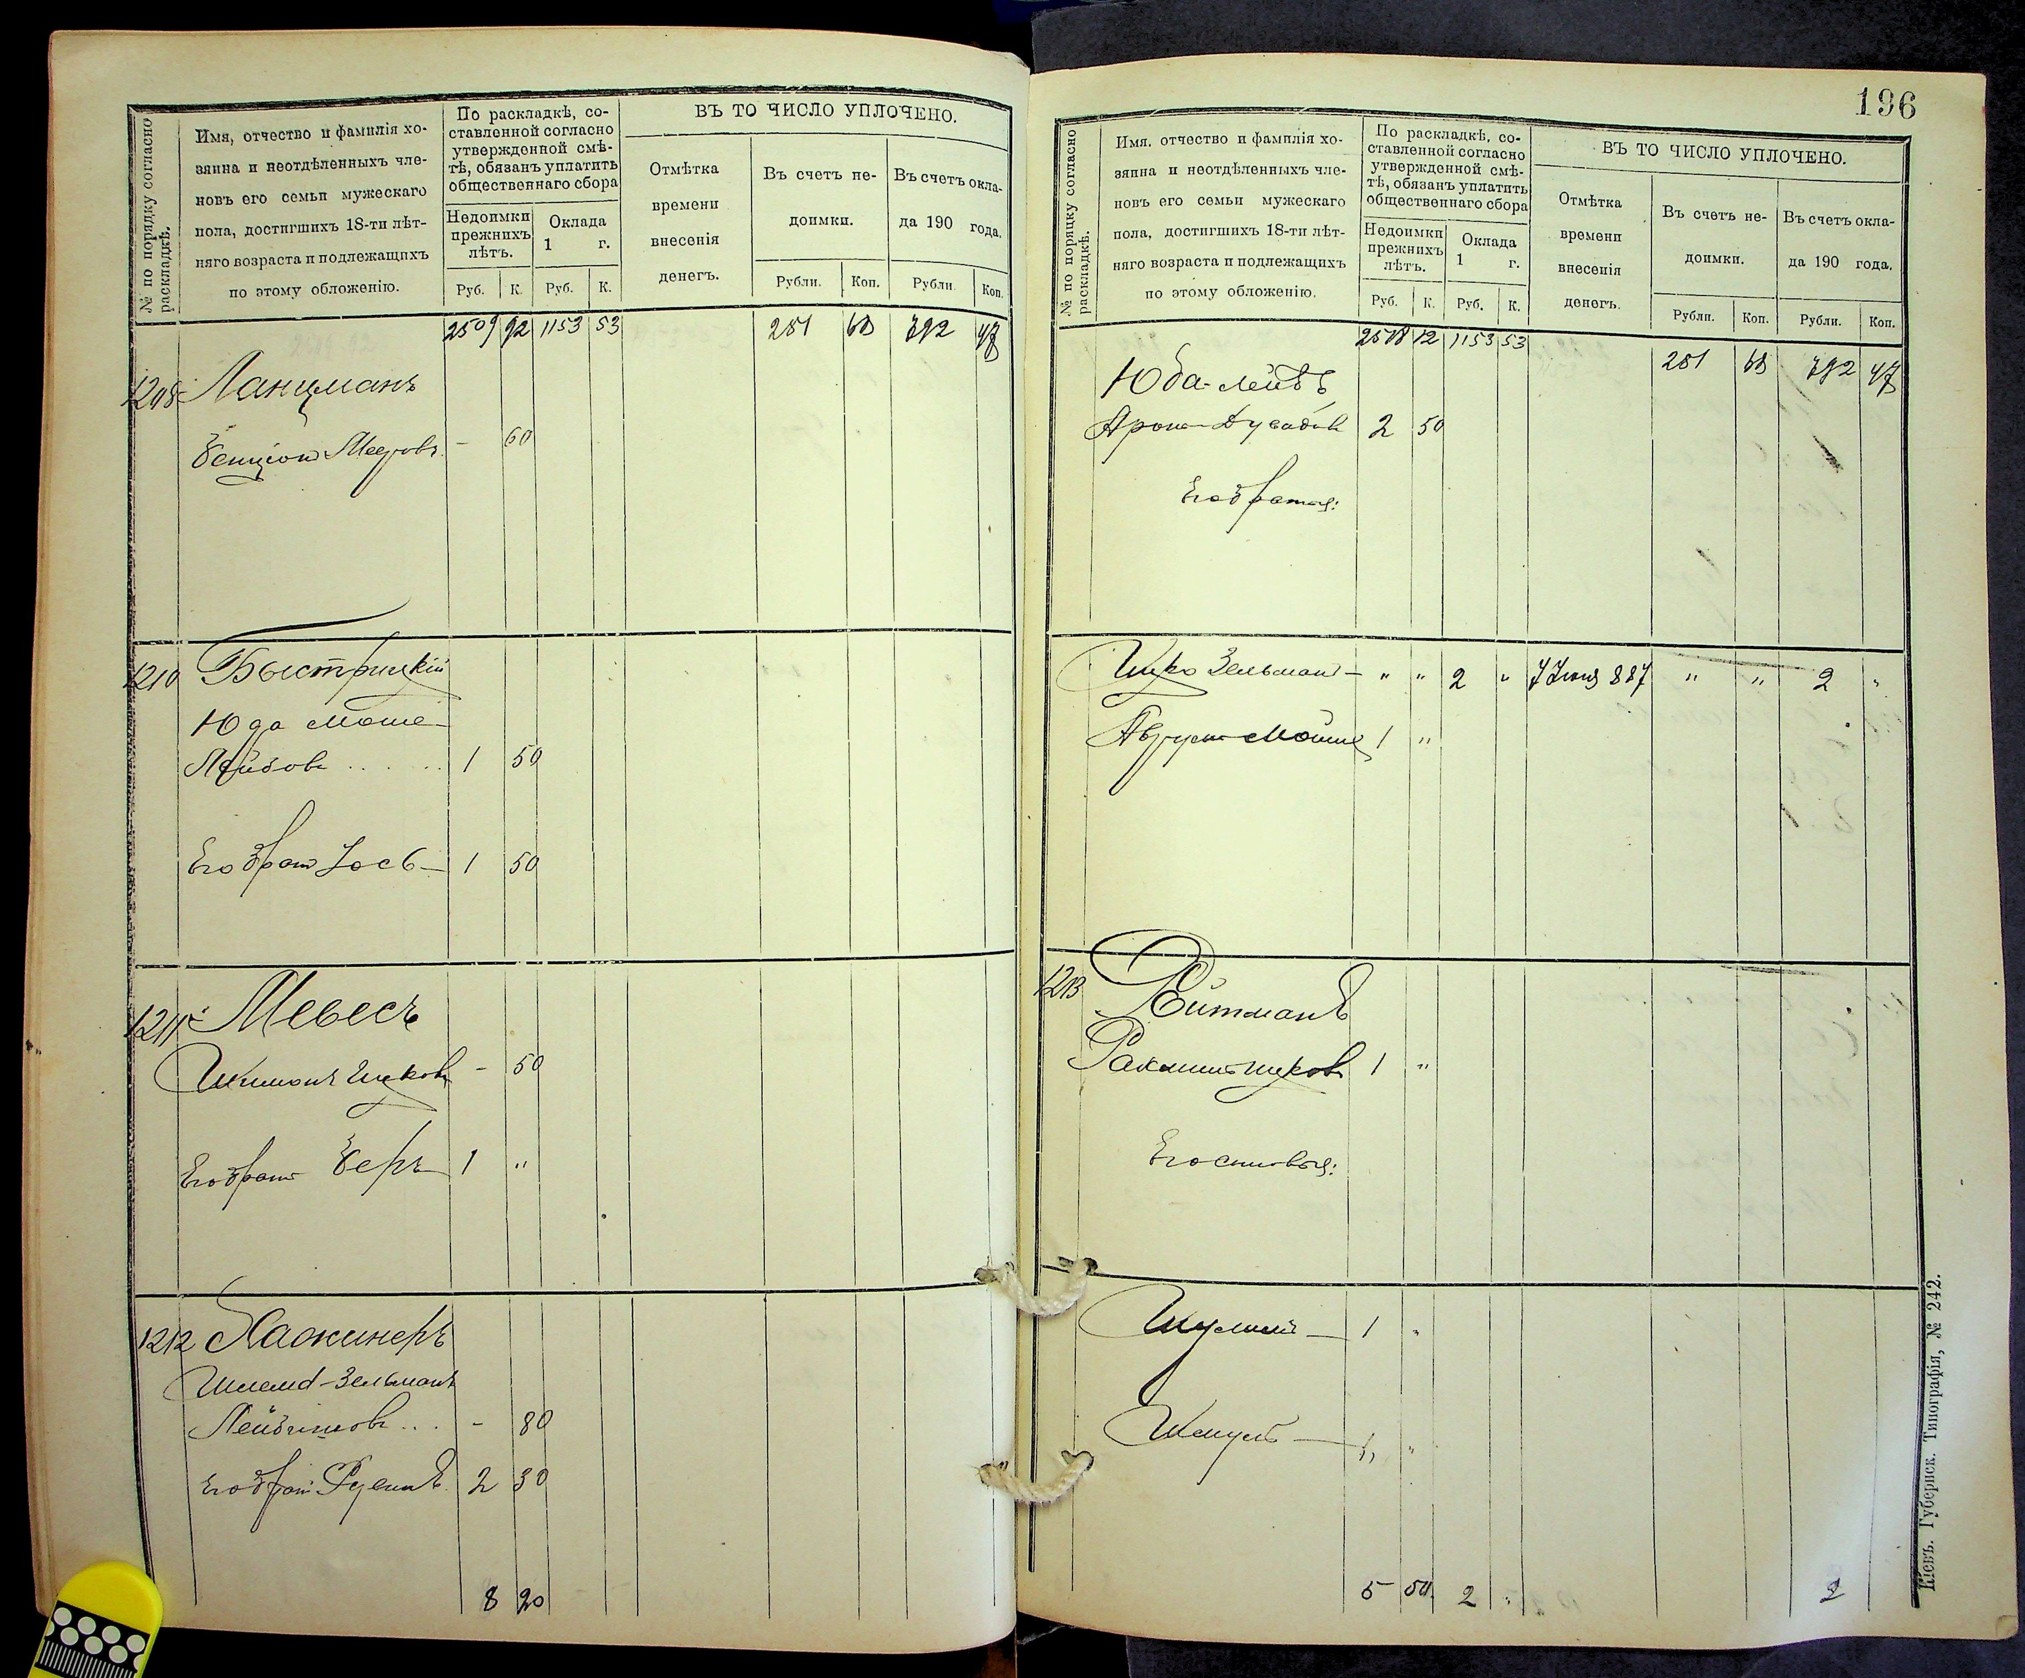 № по порядку согласно раскладкѣ.
Имя, отчество и фамилія хо-
зяина и неотдѣленныхъ чле-
новъ его семьи мужескаго
пола, достигшихъ 18-ти лѣт-
няго возраста и подлежащихъ
по этому обложенію.
По раскладкѣ, со-
ставленной согласно
утвержденной смѣ-
тѣ, обязанъ уплатить
общественнаго сбора
Недоимки
прежнихъ
лѣтъ.
Оклада
1 г.
Руб. К. Руб. К.
ВЪ ТО ЧИСЛО УПЛОЧЕНО.
Отмѣтка
времени
внесенія
денегъ.
Въ счетъ не-
доимки.
Въ счетъ окла-
да 190 года.
Рубли. Коп. Рубли Коп.
2509 92 1153 53 281 68 792 47
Ланцманъ
Бенціонъ Мееровъ - 60
1210 Быстрицкій
Юда Моше-
Лейбовъ 1 50
Его братъ Іось 1 50
1211 Мевесъ
Шимонъ Ицковъ - 50
Его братъ Беръ 1 "
1212
Зельманъ
- 80
Его братъ 2 30
8 20
196
№ по порядку согласно раскладкѣ.
Имя, отчество и фамилія хо-
зяина и неотдѣленныхъ чле-
новъ его семьи мужескаго
пола, достигшихъ 18-ти лѣт-
няго возраста и подлежащихъ
по этому обложенію.
По раскладкѣ, со-
ставленной согласно
утвержденной смѣ-
тѣ, обязанъ уплатить
общественнаго сбора
Недоимки
прежнихъ
лѣтъ.
Оклада
1 г.
Руб. К. Руб. К.
ВЪ ТО ЧИСЛО УПЛОЧЕНО.
Отмѣтка
времени
внесенія
денегъ.
Въ счетъ не-
доимки.
Въ счетъ окла-
да 190 года.
Рубли. Коп. Рубли. Коп.
2518 12 1153 53 281 68 792 47
Лейбъ
Арон 2 50
Его братья:
Ицко Зельман — " " 2 " 887 " " 2 "
1 "
1213 Ройтманъ
Ицковъ 1 "
Его сыновья:
1 "
Шмуль — 1 "
5 50 2 " 2
Кіевъ. Губернск. Типографія, № 242.